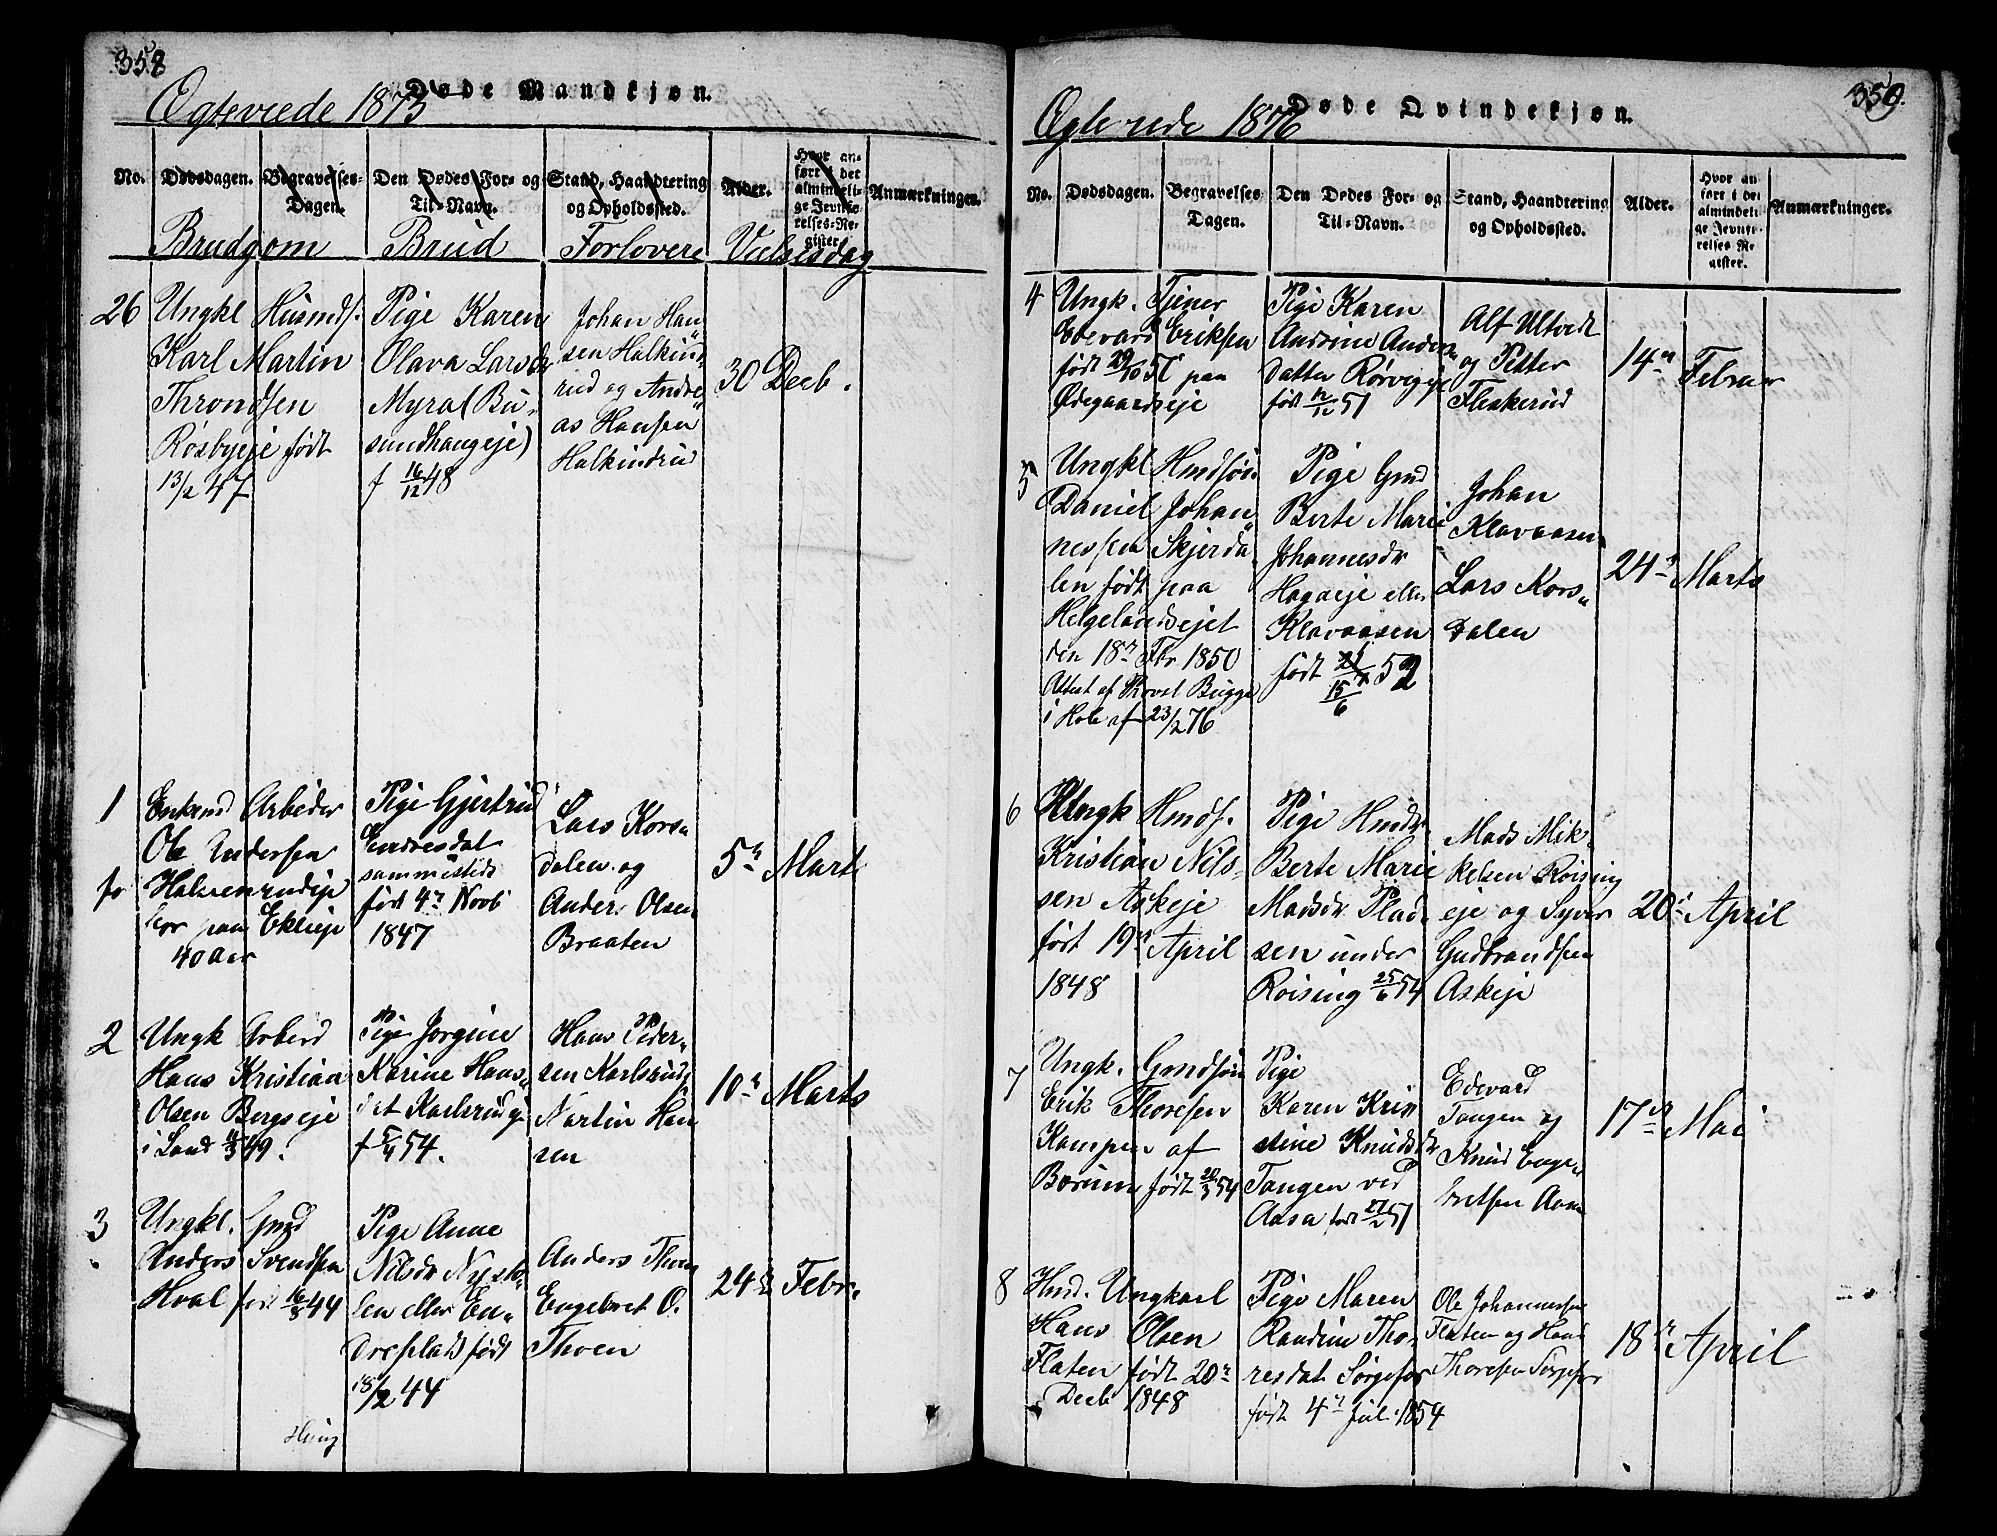 358
Døde Mandkjøn.
Egteviede 1875
No.
Dødsdagen.
Begravelses-
Dagen.
Den Dødes For- og
Til-Navn.
Stand, Haandtering
og Opholdssted.
Alder.
Hvor an-
ført i det
almindeli-
ge Jevnfø-
relses-Re-
gister.
Anmærkninger.
Brudgom
Brud
Forlovere
Vielsesdag
26
Ungkl Husmds.
Karl Martin
Throndsen
Røsbyeje født
13/2 47
Pige Karen
Olava Larsdr
Myra (Bu-
sundhaugeje)
f 16/12 48
Johan Han-
sen Halkind-
rud og Andre-
as Hansen
Halkindru
30 Decb.
1
Enkmd Arbeder
Ole Andersen
Halvorsrudeje
paa Ekleje
40 Aar
Pige Gjertrud
Endresdat
sammesteds
født 4de Novb
1847
Lars Kors-
dalen og
Anders Olsen
Braaten
5te Mart
2
Ungk Arbeid
Hans Kristian
Olsen Bergseje
i Land 49.
Pige Jørgine
Karine Hans-
dat Karlsrudeje
f 5/4 54.
Hans Peder-
sen Karlsrude
Martin Han
sen
10de Marts
3
Ungkl. Gmd
Anders Svendsen
Hval født 16/8 44
Pige Anne
Nilsdr Nysto-
len eller En-
dreplads født
18/2 44
Anders Thoen
Engebret O.
Thoen
24de Febr.
359.
Døde Qvindekjøn.
Egteviede 1876
No.
Dødsdagen.
Begravelses
Dagen.
Den Dødes For- og
Til-Navn.
Stand, Haandtering
og Opholdssted.
Alder.
Hvor an
ført i det
almindeli-
ge Jevnfø-
relses Re-
gister.
Anmærkninger.
4
Ungk. Tjener
Edevard Eriksen
født 29/10 51 paa
Ødegaardseje
Pige Karen
Andrine Anders
datter Rørvigeje
født 12/12 51
Alf Ultvedt
og Petter
Fleskerud
14de Februar
5
Ungkl Hmdsøn
Daniel Johan-
nessen Skjerda
len født paa
Helgelandsejet
den 18de Fbr 1850
Attest af Provst Bugge
i Hole af 23/2 76
Pige Gmd
Berte Marie
Johannesdr
Hagaeje eller
Klavaasen
født 15/6 52
Johan
Klavaasen
Lars Kors-
dalen
24de Marts
6
Ungk Hmds.
Kristian Nils-
sen Askeje
født 19de April
1848
Pige Hmdr.
Berte Marie
Madsdr Plad-
sen under
Roising 25/6 54
Mads Mik-
kelsen Roising
eje og Syver
Gudbrandsen
Askeje
20de April
7
Ungk. Gmdsøn
Erik Thoresen
Kampen af
Bærum født 20/3 54
Pige
Karen Kri
stine Knudsdr
Tangen ved
Aasa født 27/2 51
Edevard
Tangen og
Knud Enge-
bretsen Aasa
17de Mai
8
Hmd. Ungkarl
Hans Olsen
Flaten født 20de
Decb 1848
Pige Maren
Randine Tho-
resdat Sørgefos
født 4de Juli 1854
Ole Johannessen
Flaten og Hans
Thoresen Sørgefos
18de April